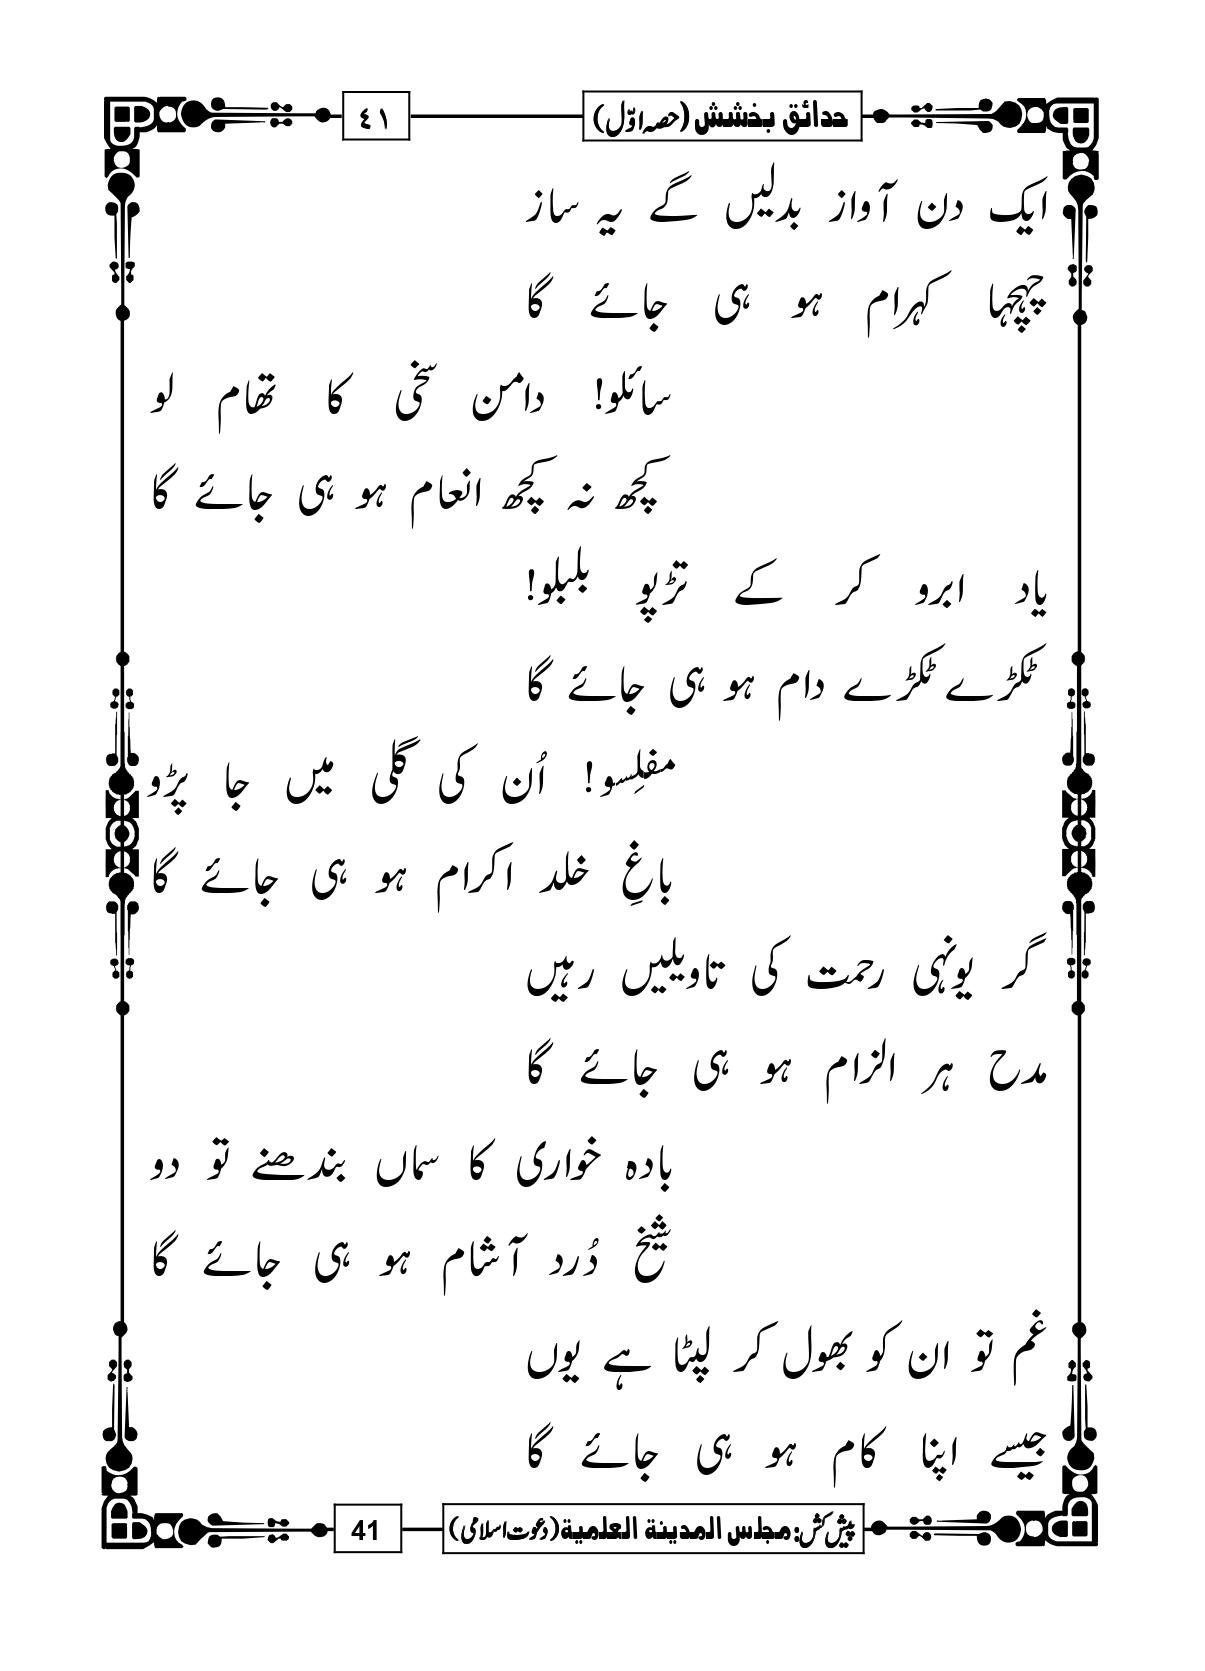 حدائق بخشش (حصہ اوّل)
٤١
ایک دن آواز بدلیں گے یہ ساز
چہچہا کہرام ہو ہی جائے گا
سائلو! دامن سخی کا تھام لو
کچھ نہ کچھ انعام ہو ہی جائے گا
یاد ابرو کر کے تڑپو بلبلو!
ٹکڑے ٹکڑے دام ہو ہی جائے گا
مفلِسو! اُن کی گلی میں جا پڑو
باغِ خلد اکرام ہو ہی جائے گا
گر یونہی رحمت کی تاویلیں رہیں
مدح ہر الزام ہو ہی جائے گا
بادہ خواری کا سماں بندھنے تو دو
شیخ دُرد آشام ہو ہی جائے گا
غم تو ان کو بھول کر لپٹا ہے یوں
جیسے اپنا کام ہو ہی جائے گا
پیش کش: مجلس المدینة العلمیة (دعوت اسلامی)
41